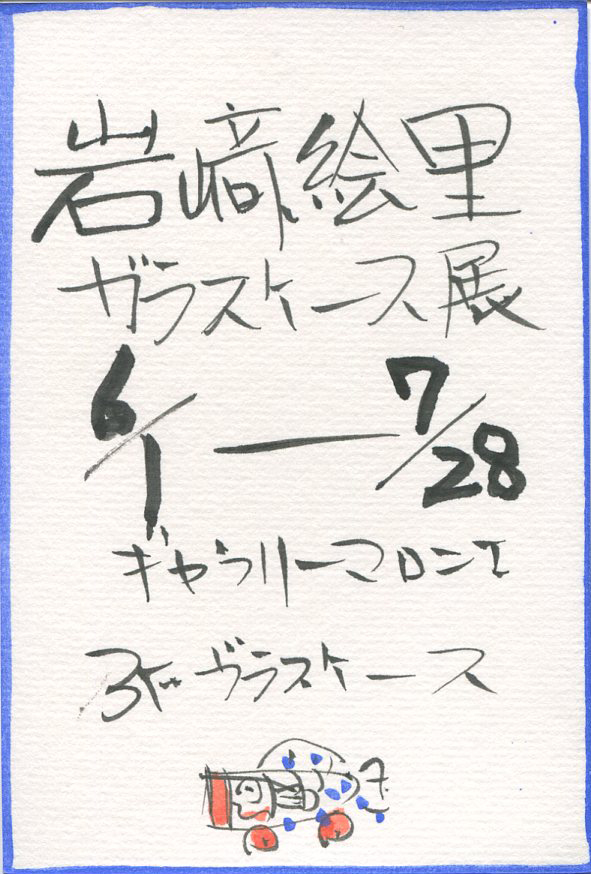 岩﨑絵里
ガラスケース展
6/1 — 7/28
ギャラリーマロニエ
3F. ガラスケース